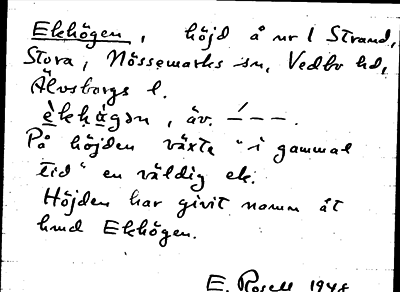 Ekhögen, höjd å nr 1 Strand,
Stora, Nössemarks sn, Vedbo hd,
Älvsborgs l.
èkhǻgən, äv. –́ – –.
På höjden växte "i gammal
tid" en väldig ek.
Höjden har givit namn åt
hmd Ekhögen.
E. Rosell 1948